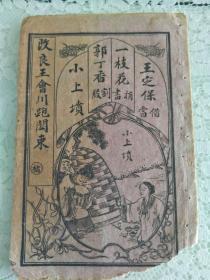 王定保借當
一枝花捎書
郭丁香割股
小上墳
改良王會川跑關東
小上墳